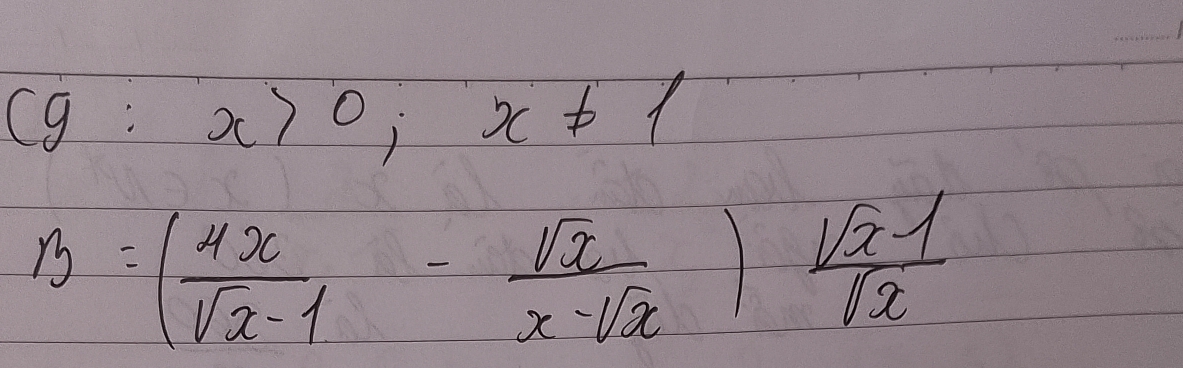 Cg : x > 0 ; x ≠ 1
B = (4x/(√x - 1) - √x/(x - √x)) (√x - 1)/√x